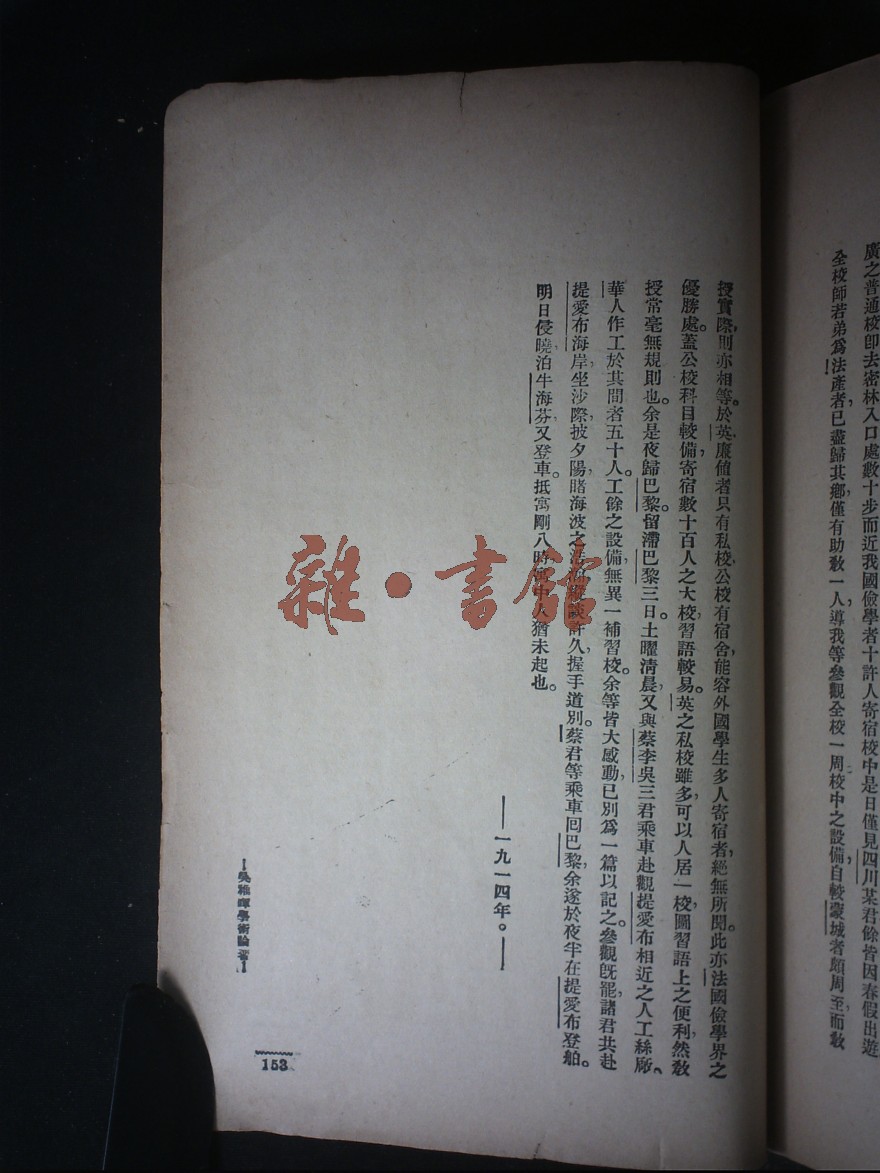 廣之普通校卽去密林入口處數十步而近我國儉學者十許人寄宿校中是日僅見四川某君餘皆因春假出遊
全校師若弟爲法產者已盡歸其鄉，僅有助敎一人，導我等參觀全校一周校中之設備，自較蒙城者頗周至，而敎
授實際，則亦相等。於英，廉値者只有私校，公校有宿舍，能容外國學生多人寄宿者，絕無所聞。此亦法國儉學界之
優勝處。蓋公校科目較備，寄宿數十百人之大校，習語較易。英之私校雖多，可以人居一校，圖習語上之便利，然敎
授常毫無規則也。余是夜歸巴黎。留滯巴黎三日。土曜淸晨，又與蔡李吳三君乘車赴觀提愛布相近之人工絲廠、
華人作工於其間者五十人。工餘之設備，無異一補習校。余等皆大感動，已別爲一篇以記之。參觀旣罷，諸君共赴
提愛布海岸，坐沙際，披夕陽，睹海波之 縱談許久，握手道別。蔡君等乘車囘巴黎，余遂於夜半在提愛布登船。
明日侵曉泊牛海芬，又登車。抵寓剛八時， 猶未起也。
——一九一四年。——
吳稚暉學術論著
153
雜·書館